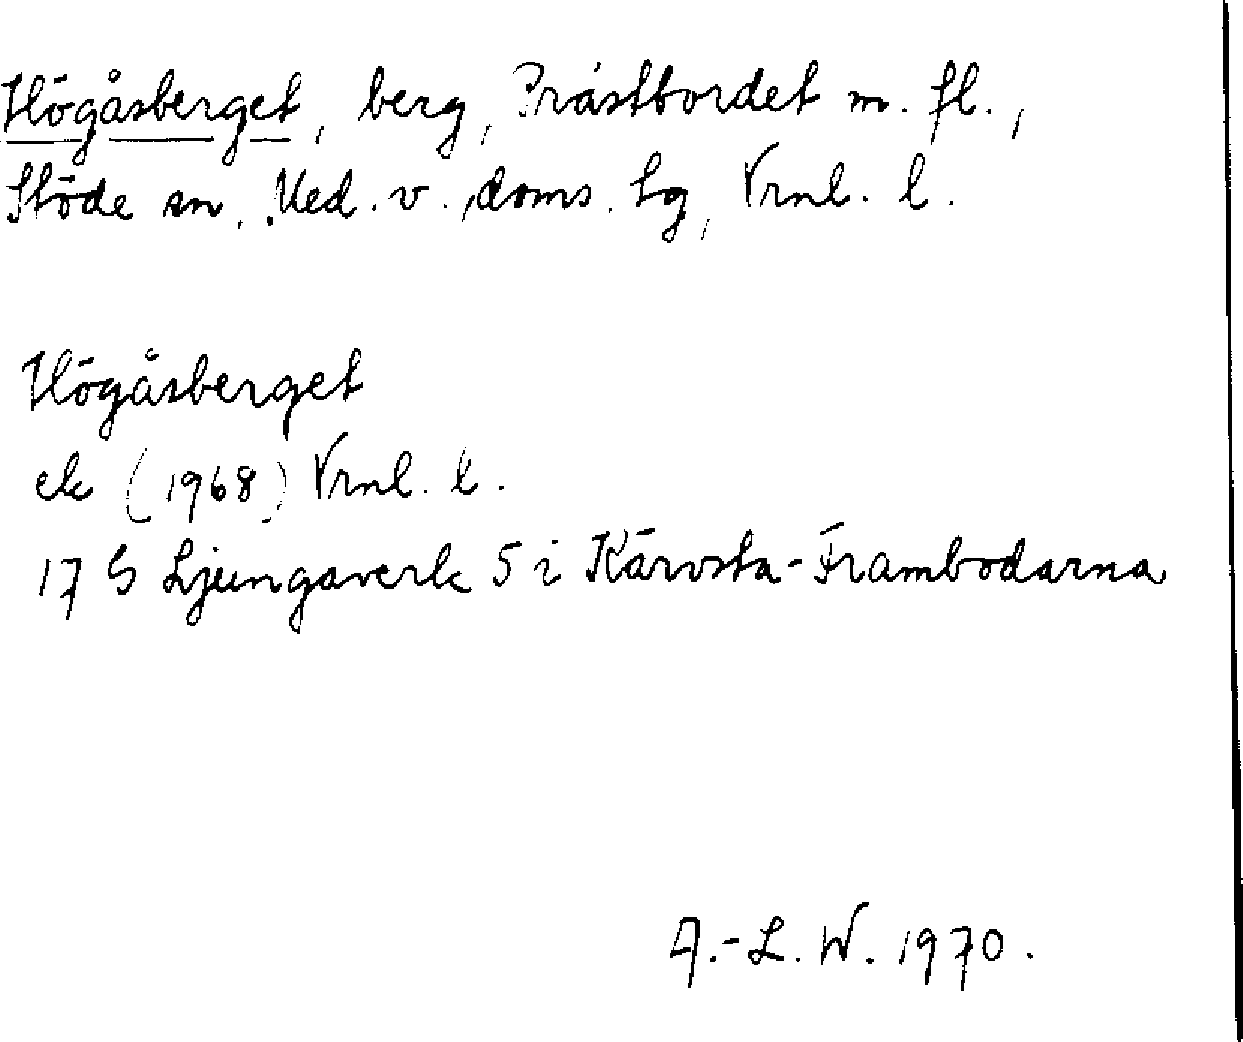 Högåsberget, berg, Prästbordet m. fl.,
Stöde sn, Med. v., doms. tg, Vrnl. l.
Högåsberget
ek (1968) Vrnl. l.
17 G Ljungaverk 5 i Kärvsta-Frambodarna
A.-L. W. 1970.